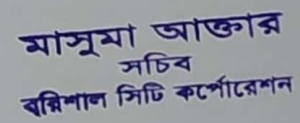 মাসুমা আক্তার
সচিব
বরিশাল সিটি কর্পোরেশন